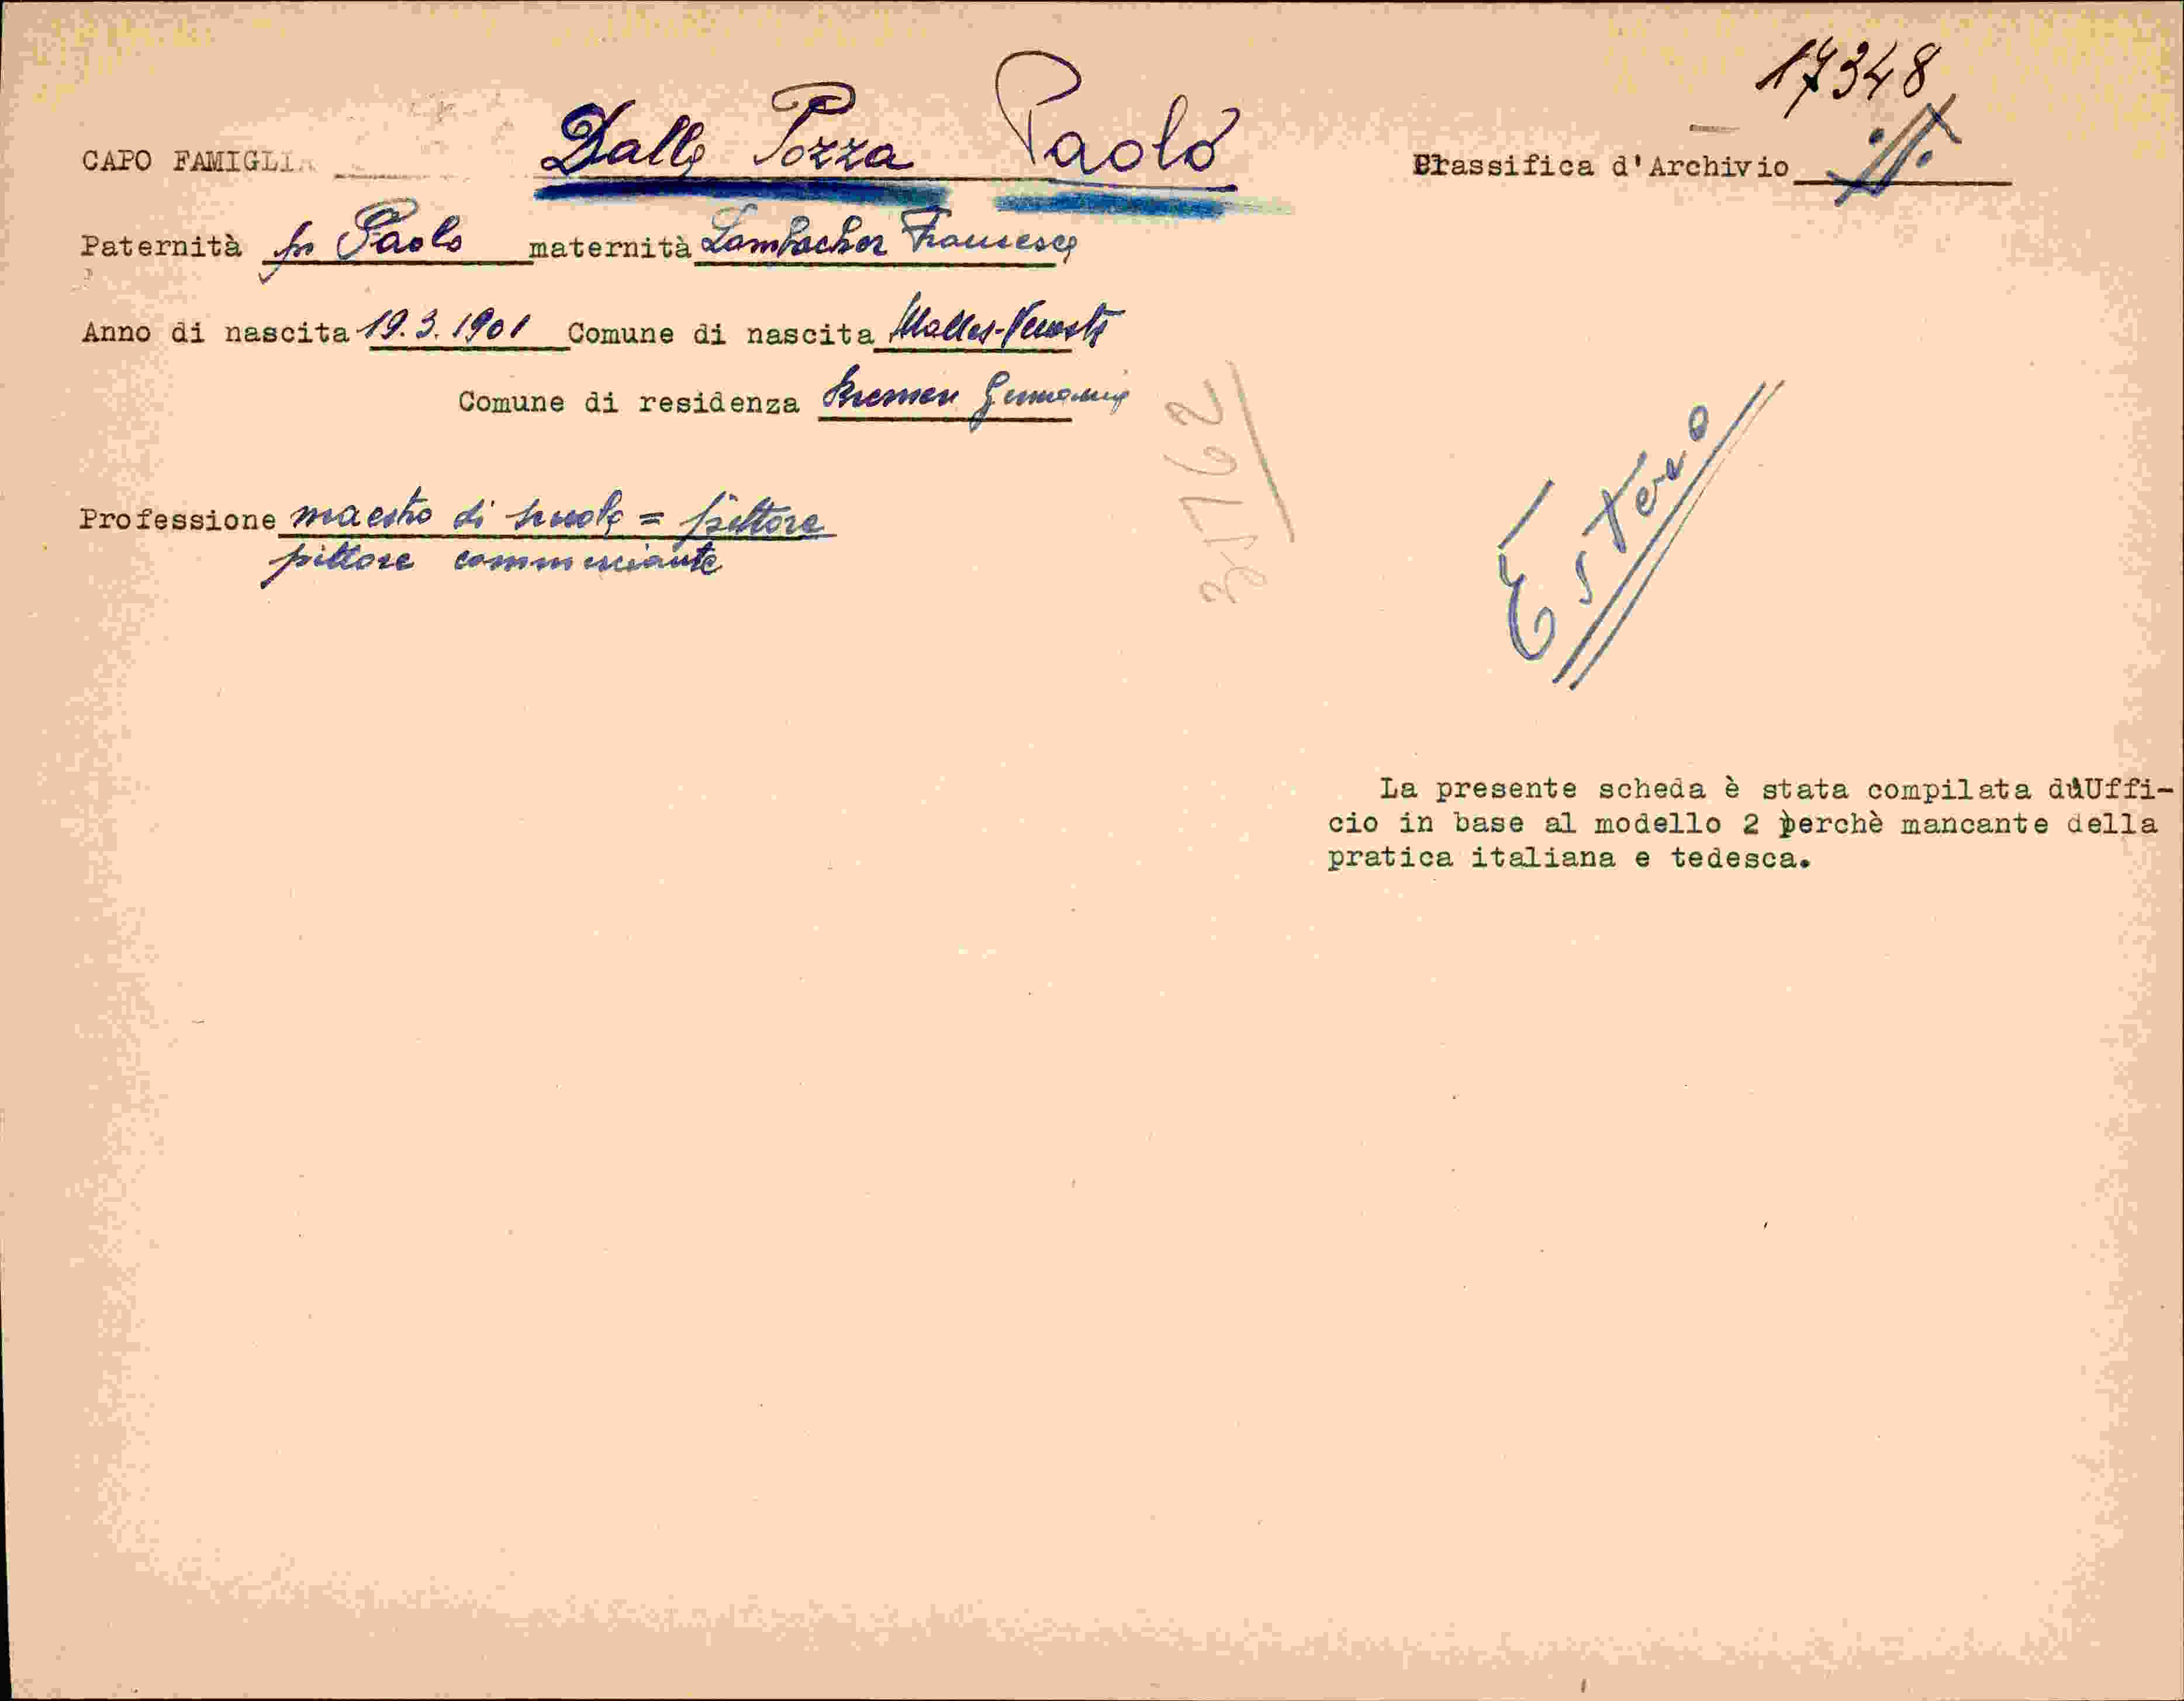 17348
CAPO FAMIGLIA Dalla Pozza Paolo
Classifica d'Archivio ·//·
Paternità fu Paolo maternità Lambacher Francesca
Anno di nascita 19.3.1901 Comune di nascita Malles-Venosta
Comune di residenza Bremen Germania
31762
Estero
Professione maestro di scuola = pittore
pittore commerciante
La presente scheda è stata compilata d'Uffi-
cio in base al modello 2 perchè mancante della
pratica italiana e tedesca.